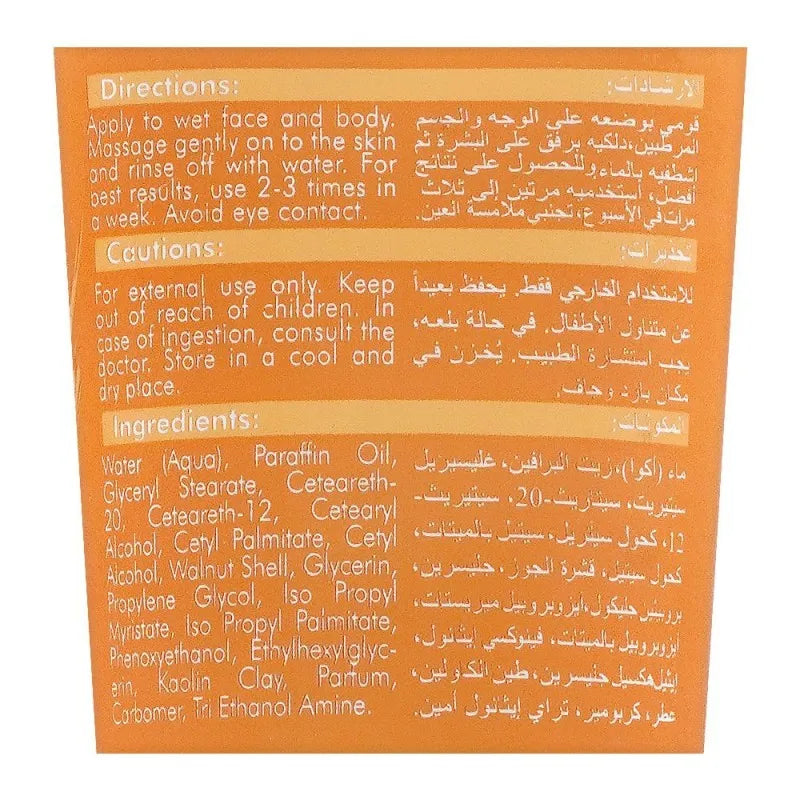 Directions:
Apply to wet face and body.
Massage gently on to the skin
and rinse off with water. For
best results, use 2-3 times in
a week. Avoid eye contact.
الإرشادات:
قومي بوضعه على الوجه والجسم
المرطبين، دلكيه برفق على البشرة ثم
إشطفيه بالماء وللحصول على نتائج
أفضل، أستخدميه مرتين إلى ثلاث
مرات في الأسبوع، تجنبي ملامسة العين.
Cautions:
For external use only. Keep
out of reach of children. In
case of ingestion, consult the
doctor. Store in a cool and
dry place.
تحذيرات:
للاستخدام الخارجي فقط. يحفظ بعيداً
عن متناول الأطفال. في حالة بلعه،
يجب استشارة الطبيب. يُخزن في
مكان بارد وجاف.
Ingredients:
Water (Aqua), Paraffin Oil,
Glyceryl Stearate, Ceteareth-
20, Ceteareth-12, Cetearyl
Alcohol, Cetyl Palmitate, Cetyl
Alcohol, Walnut Shell, Glycerin,
Propylene Glycol, Iso Propyl
Myristate, Iso Propyl Palmitate,
Phenoxyethanol, Ethylhexylglyc-
erin, Kaolin Clay, Parfum,
Carbomer, Tri Ethanol Amine.
المكونات:
ماء (أكوا)، زيت البرافين، غليسيريل
ستيريت، سيتاريث-20، سيتيريث-
12، كحول سيتريل، سيتيل بالميتات،
كحول سيتيل، قشرة الجوز، جليسرين،
بروبيلين جليكول، ايزوبروبيل ميريستات،
أيزوبروبيل بالميتات، فينوكسي إيثانول،
إيثيل هكسيل جليسرين، طين الكاولين،
عطر، كربومير، تراي إيثانول أمين.